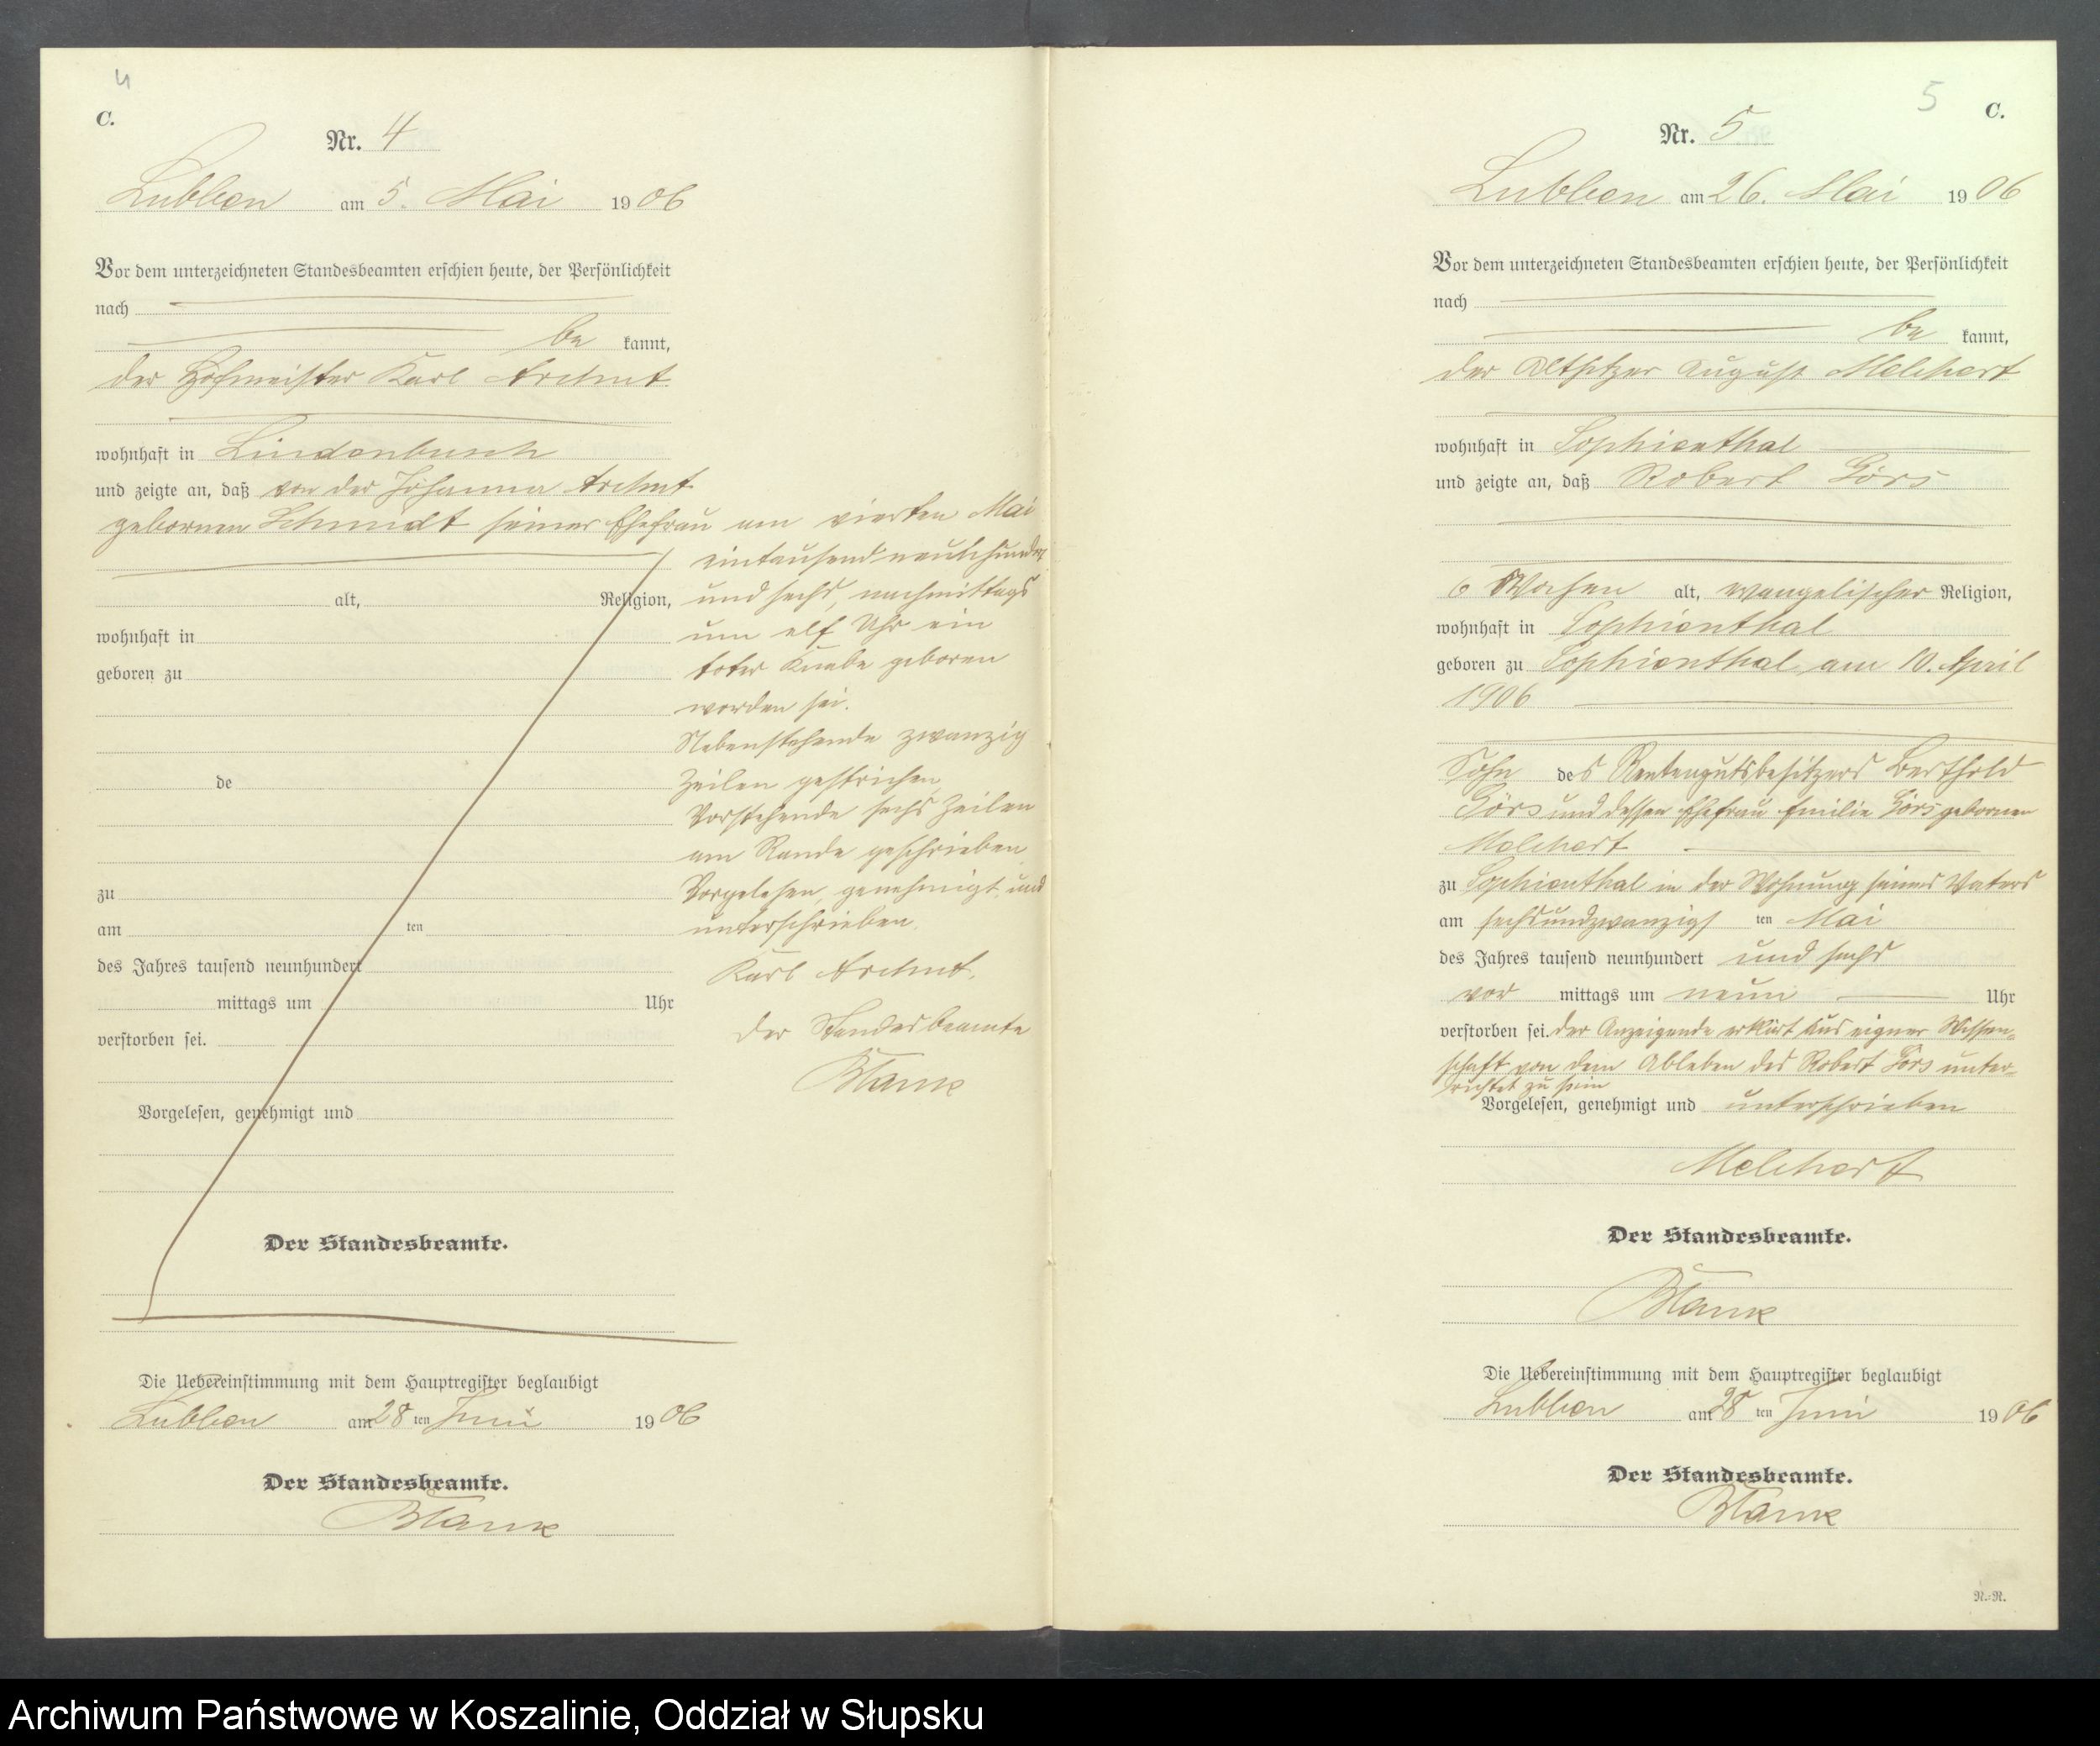 4
C.
Nr. 4
Lubben am 5. Mai 1906
Vor dem unterzeichneten Standesbeamten erschien heute, der Persönlichkeit
nach
be kannt,
der Hofmeister Karl
wohnhaft in Lindenbusch
und zeigte an, daß von der Johanna
gebornen Schmidt seiner Ehefrau am vierten Mai
eintausend neunhundert
alt, Religion,
und sechs, nachmittags
wohnhaft in
um elf Uhr ein
geboren zu
toter Knabe geboren
worden sei.
Nebenstehende zwanzig
de
Zeilen gestrichen,
Vorstehende sechs Zeilen
am Rande geschrieben
zu
Vorgelesen, genehmigt und
am ten
unterschrieben.
des Jahres tausend neunhundert
Karl
mittags um Uhr
Der Standesbeamte
verstorben sei.
Blank
Vorgelesen, genehmigt und
Der Standesbeamte.
Die Uebereinstimmung mit dem Hauptregister beglaubigt
Lubben am 28 ten Juni 1906
Der Standesbeamte.
Blank
5
C.
Nr. 5
Lubben am 26. Mai 1906
Vor dem unterzeichneten Standesbeamten erschien heute, der Persönlichkeit
nach
be kannt,
der Altsitzer August Melchert
wohnhaft in Sophienthal
und zeigte an, daß Robert Görs
6 Wochen alt, evangelischer Religion,
wohnhaft in Sophienthal
geboren zu Sophienthal am 10. April
1906
Sohn des Rentengutsbesitzers Berthold
Görs und dessen Ehefrau Emilie Görs gebornen
Melchert
zu Sophienthal in der Wohnung seines Vaters
am sechsundzwanzigs ten Mai
des Jahres tausend neunhundert und sechs
vor mittags um neun Uhr
verstorben sei. Der Anzeigende erklärt aus eigner Wissen-
schaft von dem Ableben des Robert Görs unter-
richtet zu sein
Vorgelesen, genehmigt und unterschrieben
Melchert
Der Standesbeamte.
Blank
Die Uebereinstimmung mit dem Hauptregister beglaubigt
Lubben am 28 ten Juni 1906
Der Standesbeamte.
Blank
N.=R.
Archiwum Państwowe w Koszalinie, Oddział w Słupsku